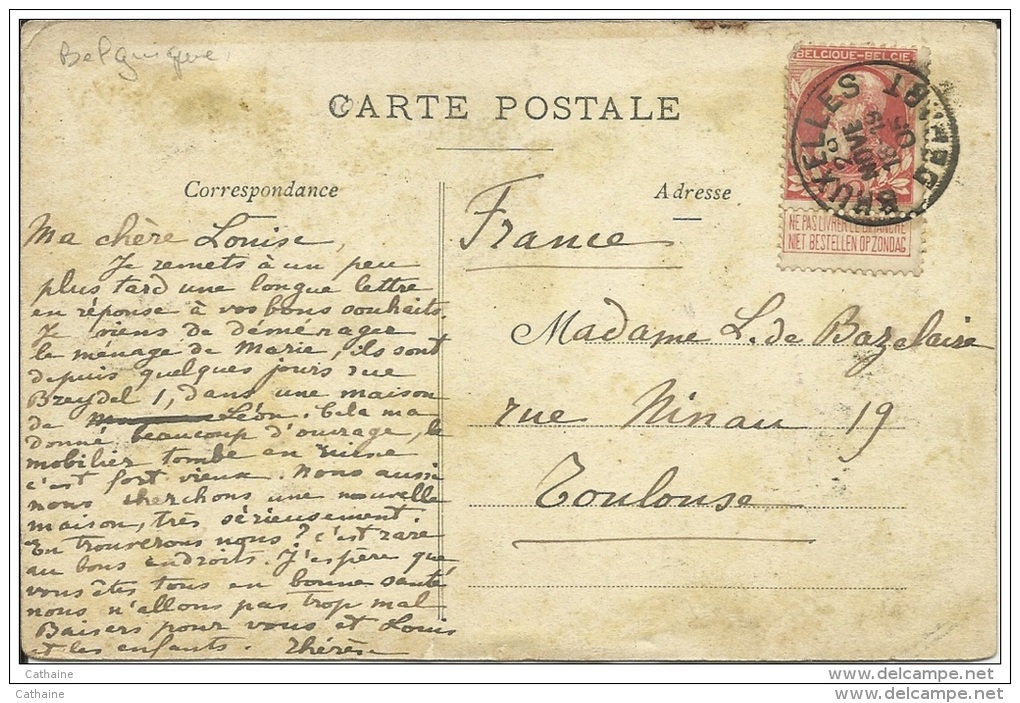 Belgique
CARTE POSTALE
Correspondance
Adresse
BELGIQUE-BELGIE
BRUXELLES
NE PAS LIVRER LE DIMANCHE
NIET BESTELLEN OP ZONDAG
Ma chère Louise,
Je remets à un peu
plus tard une longue lettre
en réponse à vos bons souhaits.
Je viens de déménager
le ménage de Marie, ils sont
depuis quelques jours rue
Breydel 1, dans une maison
de Léon. Cela m'a
donné beaucoup d'ouvrage, le
mobilier tombe en ruine
c'est fort vieux. Nous aussi
nous cherchons une nouvelle
maison, très sérieusement
En trouverons nous? c'est rare
au bons endroits. J'espère que
vous êtes tous en bonne santé
nous n'allons pas trop mal
Baisers pour vous et Louis
et les enfants. Thérèse
France
Madame L. de Bazelaire
rue Ninau 19
Toulouse
Cathaine
Cathaine
delcampe.net
delcampe.net